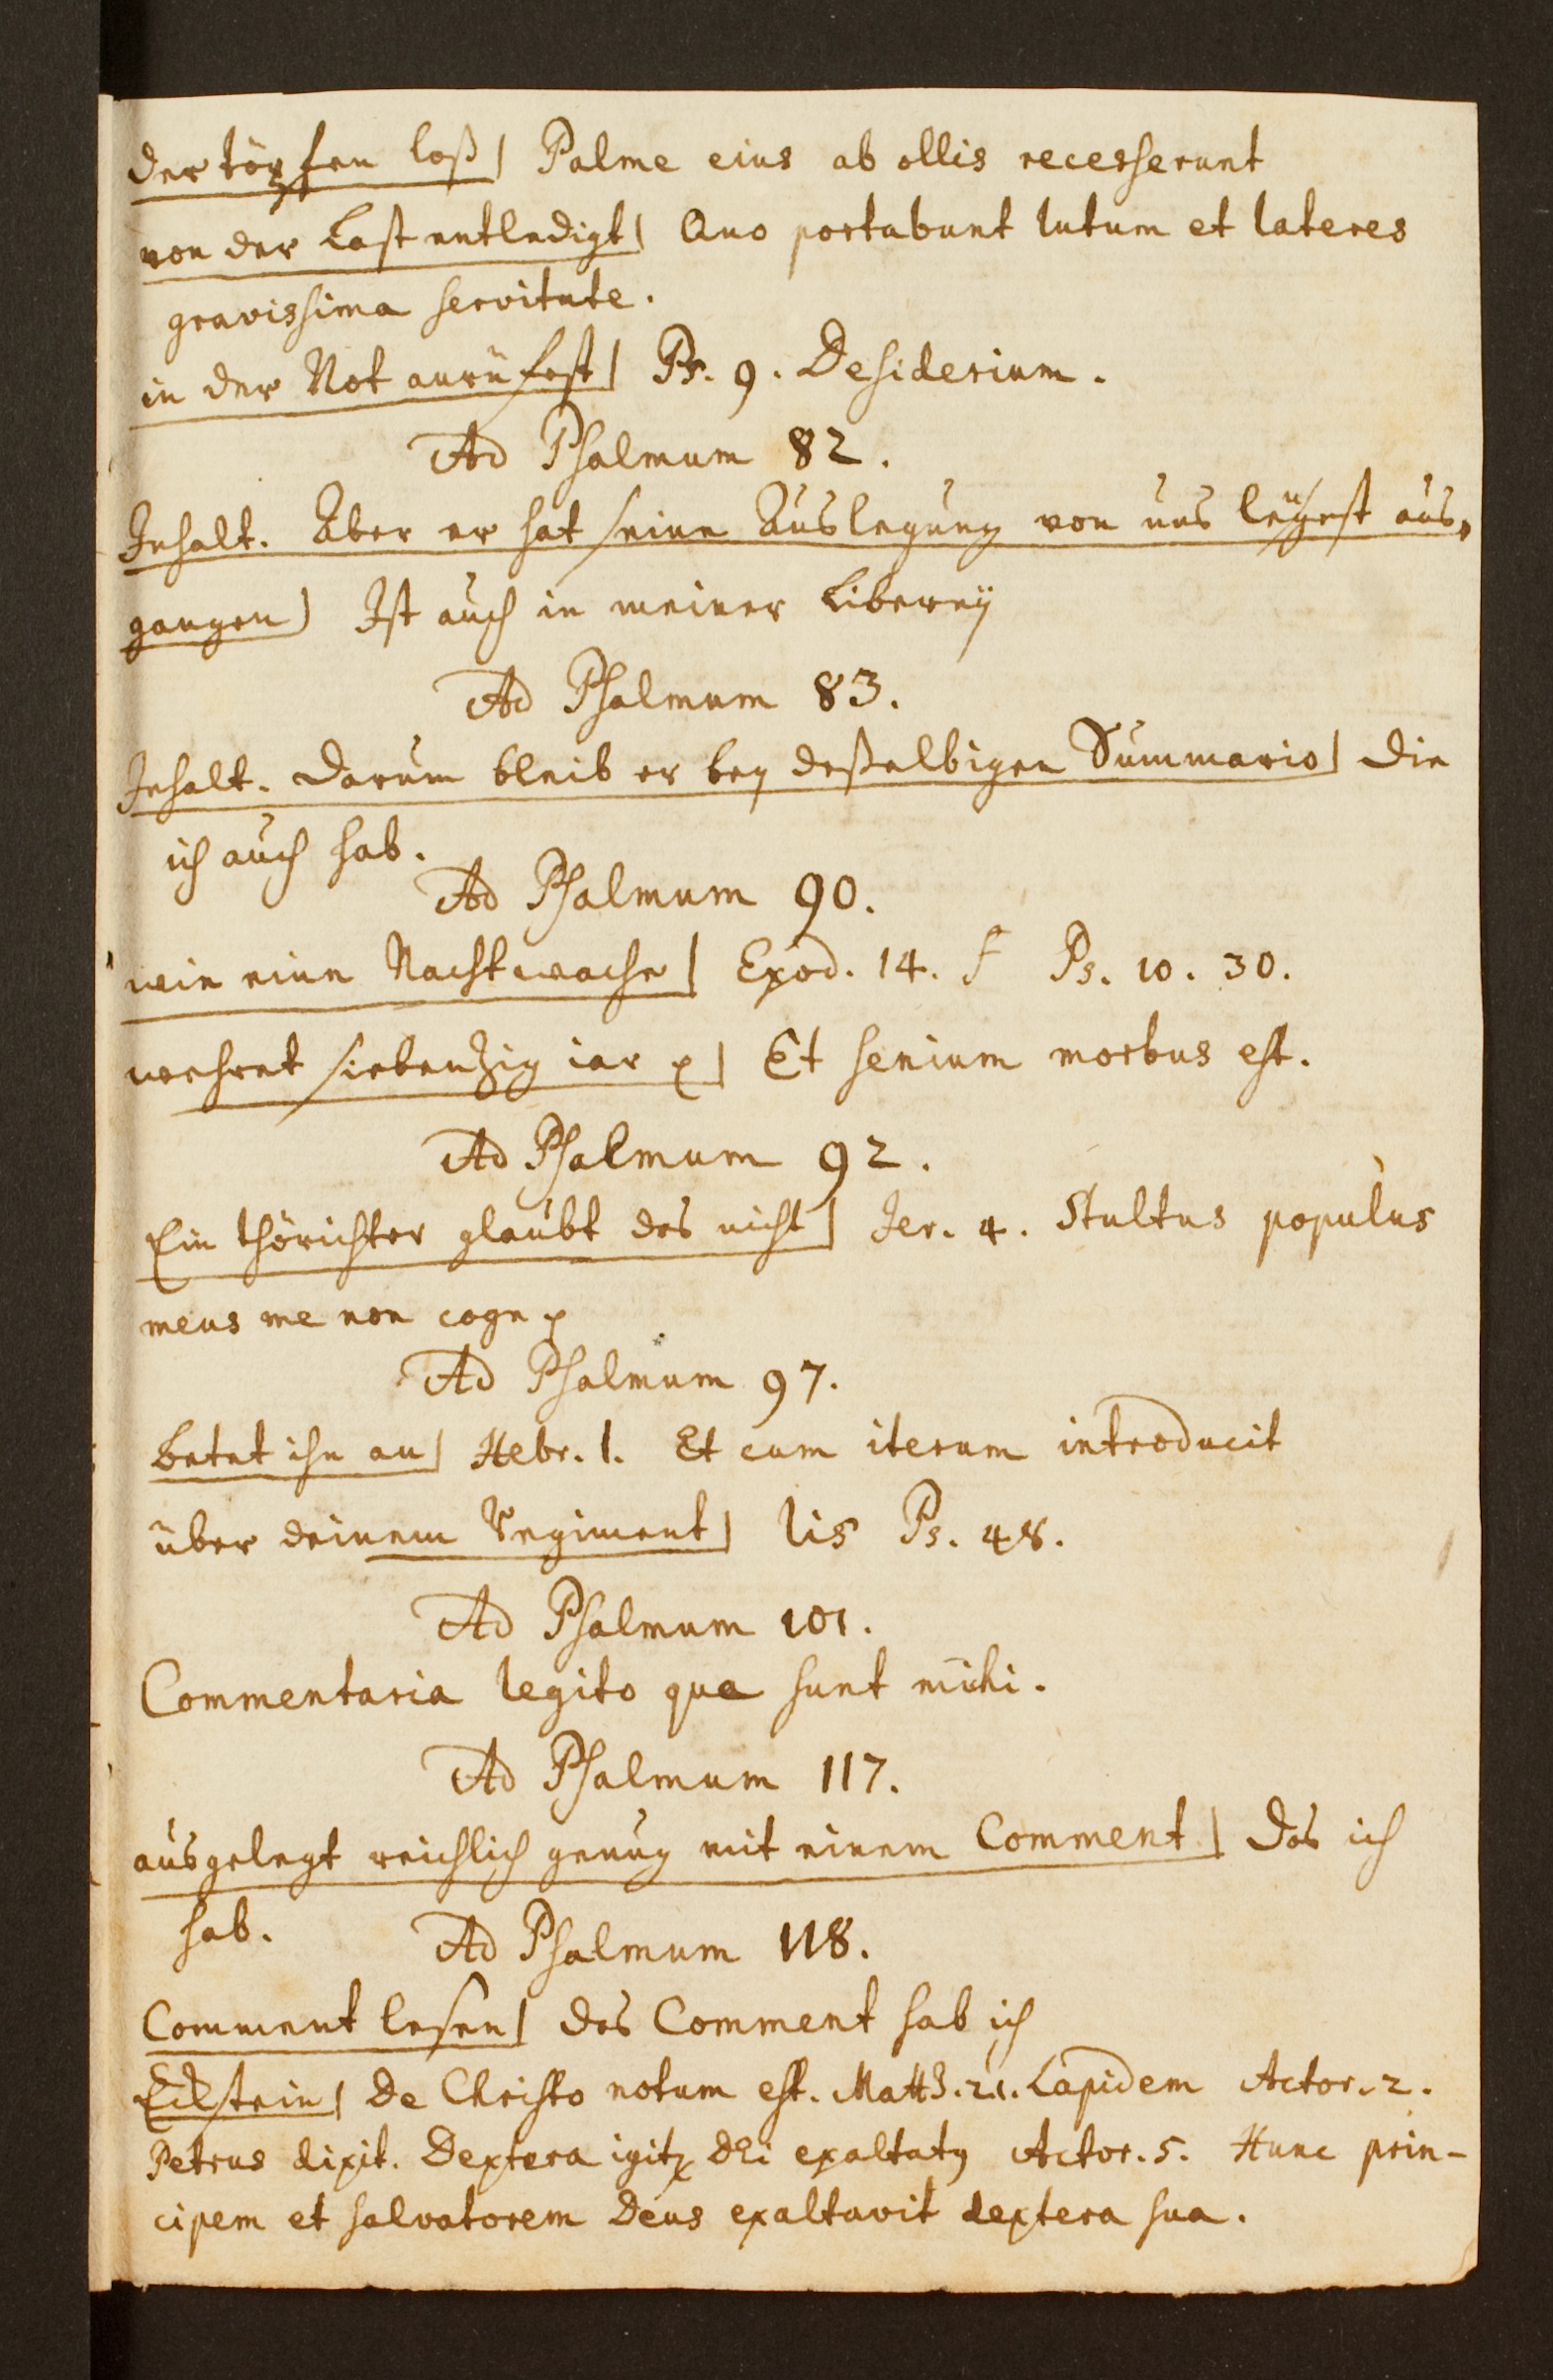 der töpfen loß| Palme eius ab ollis recesserunt
von der Last entledigt| Quo portabunt lutum et lateres
gravissima servitute.
in der Not anrüfest| Ps. 9. Desiderium.
Ad Psalmum 82.
Inhalt. Aber er hat seine Auslegung von uns lengest aus,
gangen| Ist auch in meiner Liberey
Ad Psalmum 83.
Inhalt. Darum bleib er bey desselbigen Summario| Die
ich auch hab.
Ad Psalmum 90.
wie eine Nachtwache| Exod. 14. f Ps. 10. 30.
wehret siebenzig iar ꝛ| Et senium morbus est.
Ad Psalmum 92.
Ein thörichter glaubt das nicht| Jer. 4. Stultus populus
meus me non cogn ꝛ
Ad Psalmum 97.
Betet ihn an| Hebr. 1. Et cum iterum introducit
über deinem Regiment| lis Ps. 48.
Ad Psalmum 101.
Commentaria legito que sunt mihi.
Ad Psalmum 117.
ausgelegt reichlich genug mit einem Comment| Das ich
hab.
Ad Psalmum 118.
Comment lesen| Das Comment hab ich
Eckstein| De Christo notum est. Matth. 21. Lapidem Actor. 2.
Petrus dixit. Dextera igitꝛ Dei exaltatꝰ Actor. 5. Hunc prin-
cipem et salvatorem Deus exaltavit dextera sua.